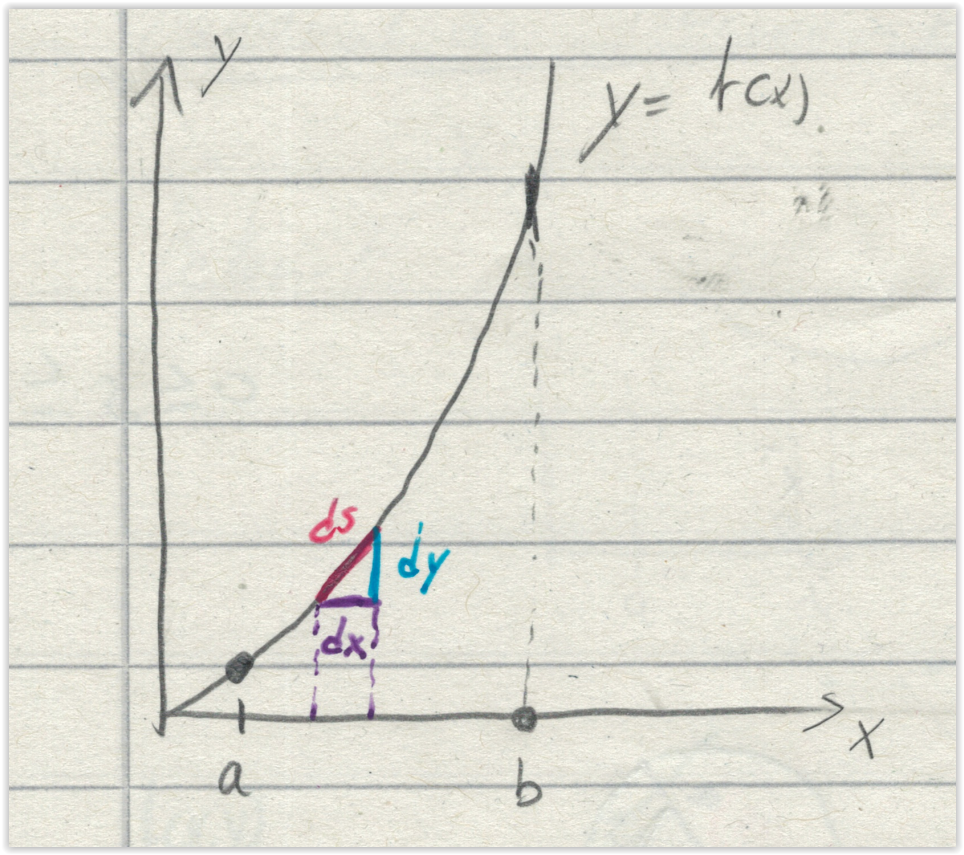 y
y = f(x)
ds
dy
dx
x
a
b